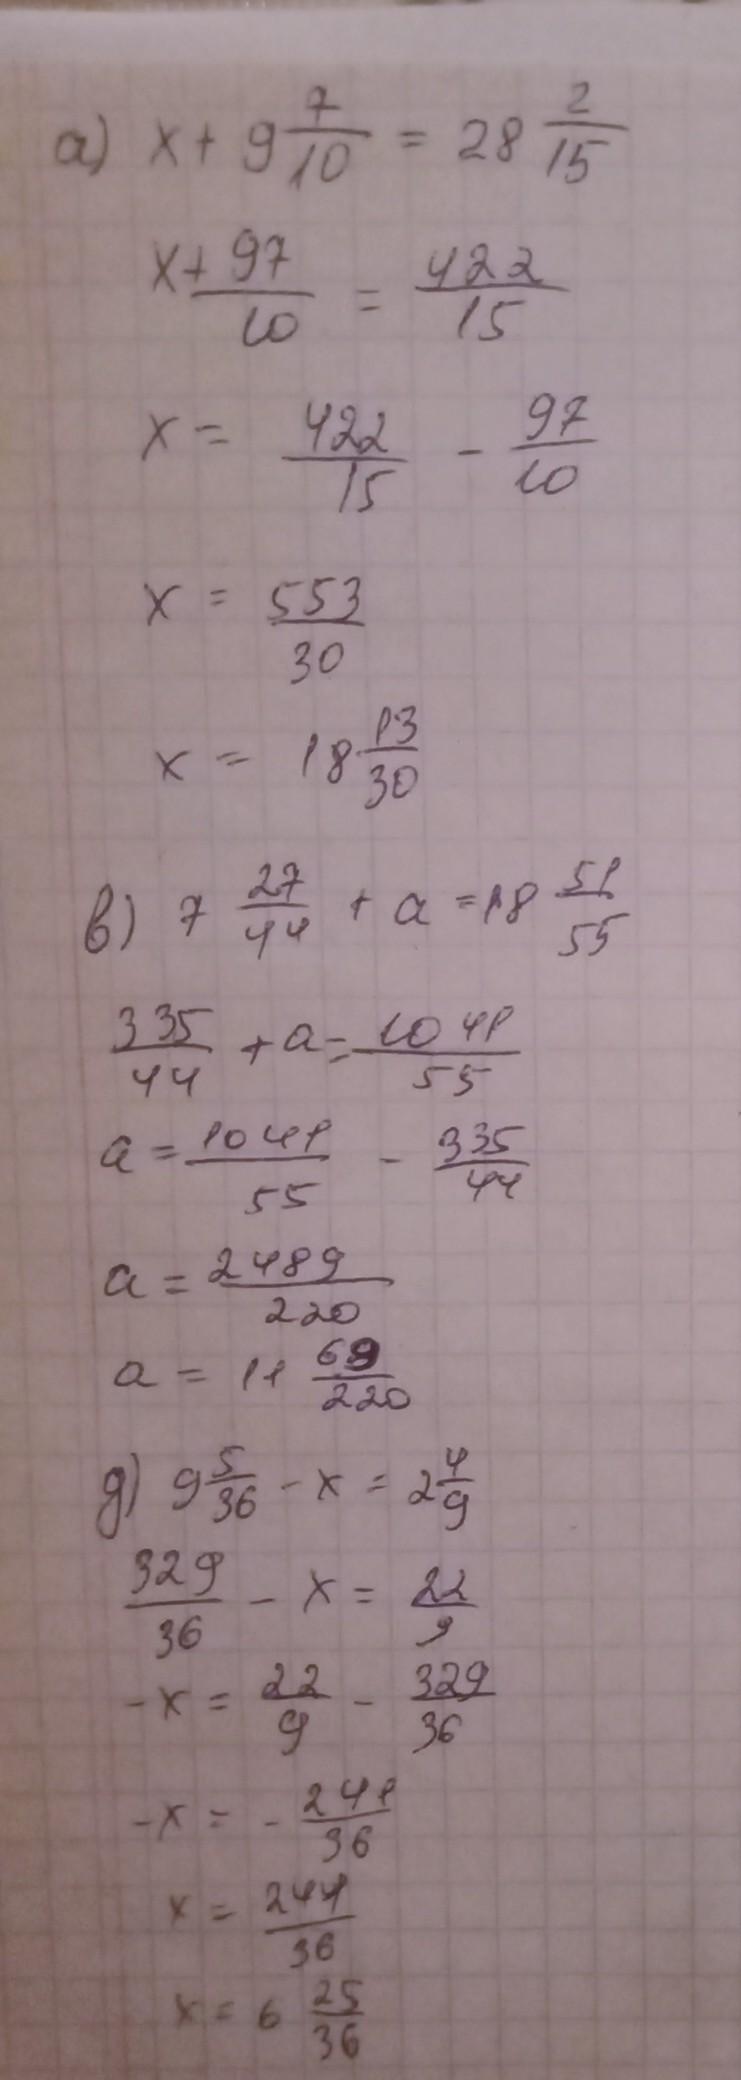 а) x + 9 7/10 = 28 2/15
x + 97/10 = 422/15
x = 422/15 - 97/10
x = 553/30
x = 18 13/30
в) 7 27/44 + a = 18 51/55
335/44 + a = 1041/55
a = 1041/55 - 335/44
a = 2489/220
a = 11 69/220
д) 9 5/36 - x = 2 4/9
329/36 - x = 22/9
-x = 22/9 - 329/36
-x = - 241/36
x = 241/36
x = 6 25/36